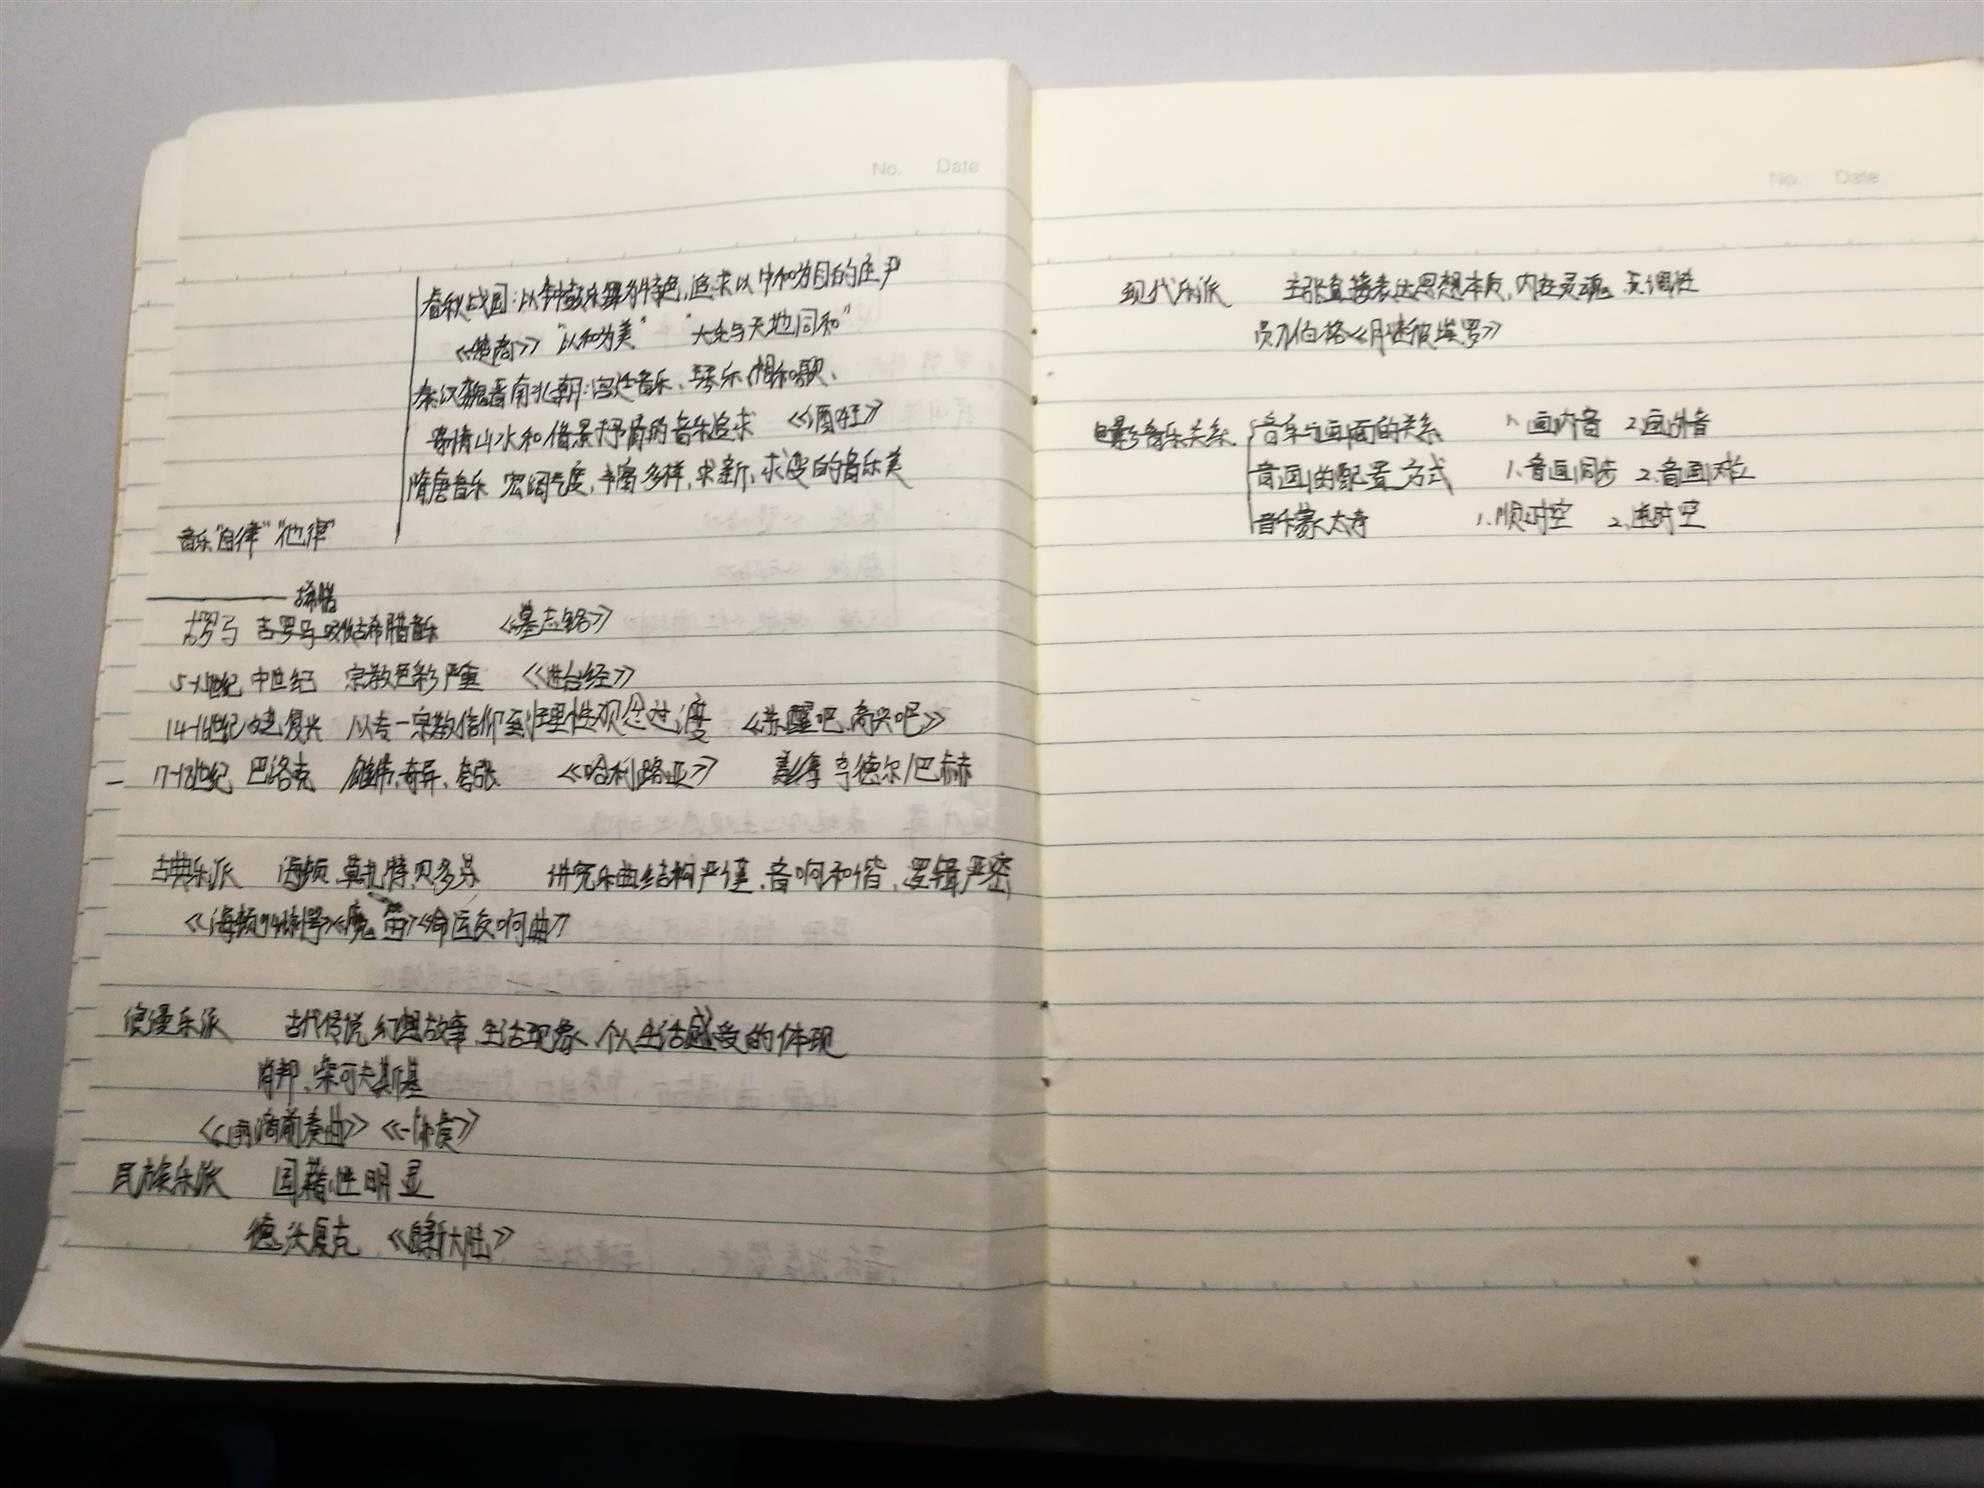 No. Date
春秋战国:以钟鼓乐器为特色,追求以中和为目的庄严
《楚商》 "以和为美" "大乐与天地同和"
秦汉魏晋南北朝:宫廷音乐、琴乐、相和歌、
寄情山水和借景抒情的音乐追求 《酒狂》
隋唐音乐 宏阔气度,丰富多样,求新、求变的音乐美
音乐"自律""他律"
古罗马 吸收古希腊音乐 《墓志铭》
中世纪 宗教色彩严重
14-16世纪文艺复兴 从专一宗教信仰至理性观念过渡 《苏醒吧,高兴吧》
17-18世纪 巴洛克 雄伟、奇异、夸张 《哈利路亚》 亨德尔/巴赫
古典乐派 海顿,莫扎特,贝多芬 讲究乐曲结构严谨、音响和谐,逻辑严密
《海顿94惊愕》《魔笛》《命运交响曲》
浪漫乐派 古代传说,幻想故事,生活现象、个人生活感受的体现
肖邦、柴可夫斯基
《雨滴前奏曲》《悲怆》
民族乐派 国籍性明显
德沃夏克 《自新大陆》
No. Date
现代乐派 主张直接表达思想本质,内在灵魂 无调性
勋伯格《月迷彼埃罗》
电影音乐关系 音乐与画面的关系 1、画内音 2、画外音
音画的配置方式 1、音画同步 2、音画对位
音乐蒙太奇 1、顺时空 2、逆时空